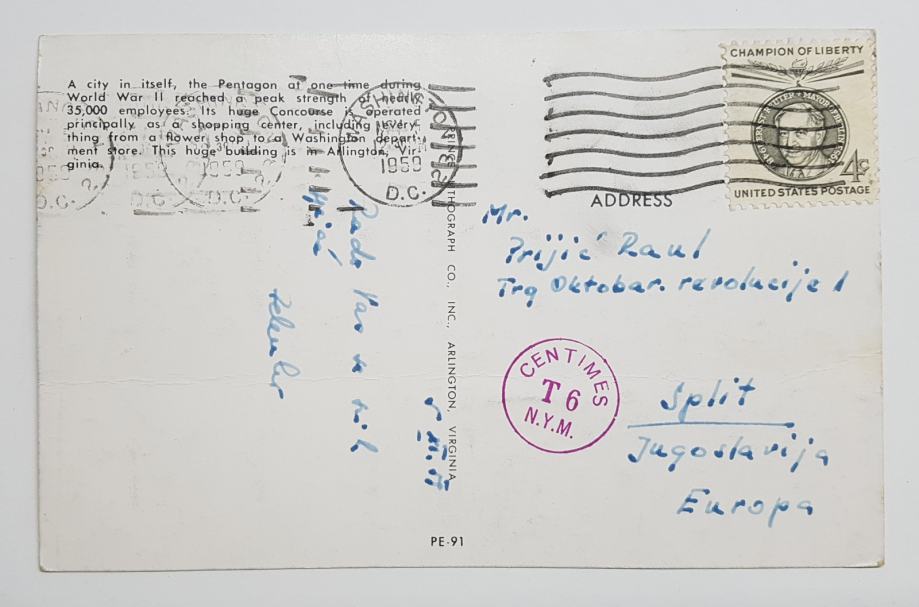 A city in itself, the Pentagon at one time during
World War II reached a peak strength of nearly
35,000 employees. Its huge Concourse is operated
principally as a shopping center, including every-
thing from a flower shop to a Washington depart-
ment store. This huge building is in Arlington, Vir-
ginia.
WASHINGTON
1959
D.C.
1959
D.C.
CHAMPION OF LIBERTY
ERNST REUTER • MAYOR OF BERLIN
4c
UNITED STATES POSTAGE
ADDRESS
Mr.
Prijić Raul
Trg Oktobar. revolucije 1
Split
Jugoslavija
Europa
CENTIMES
T 6
N.Y.M.
LITHOGRAPH CO., INC., ARLINGTON, VIRGINIA
PE-91